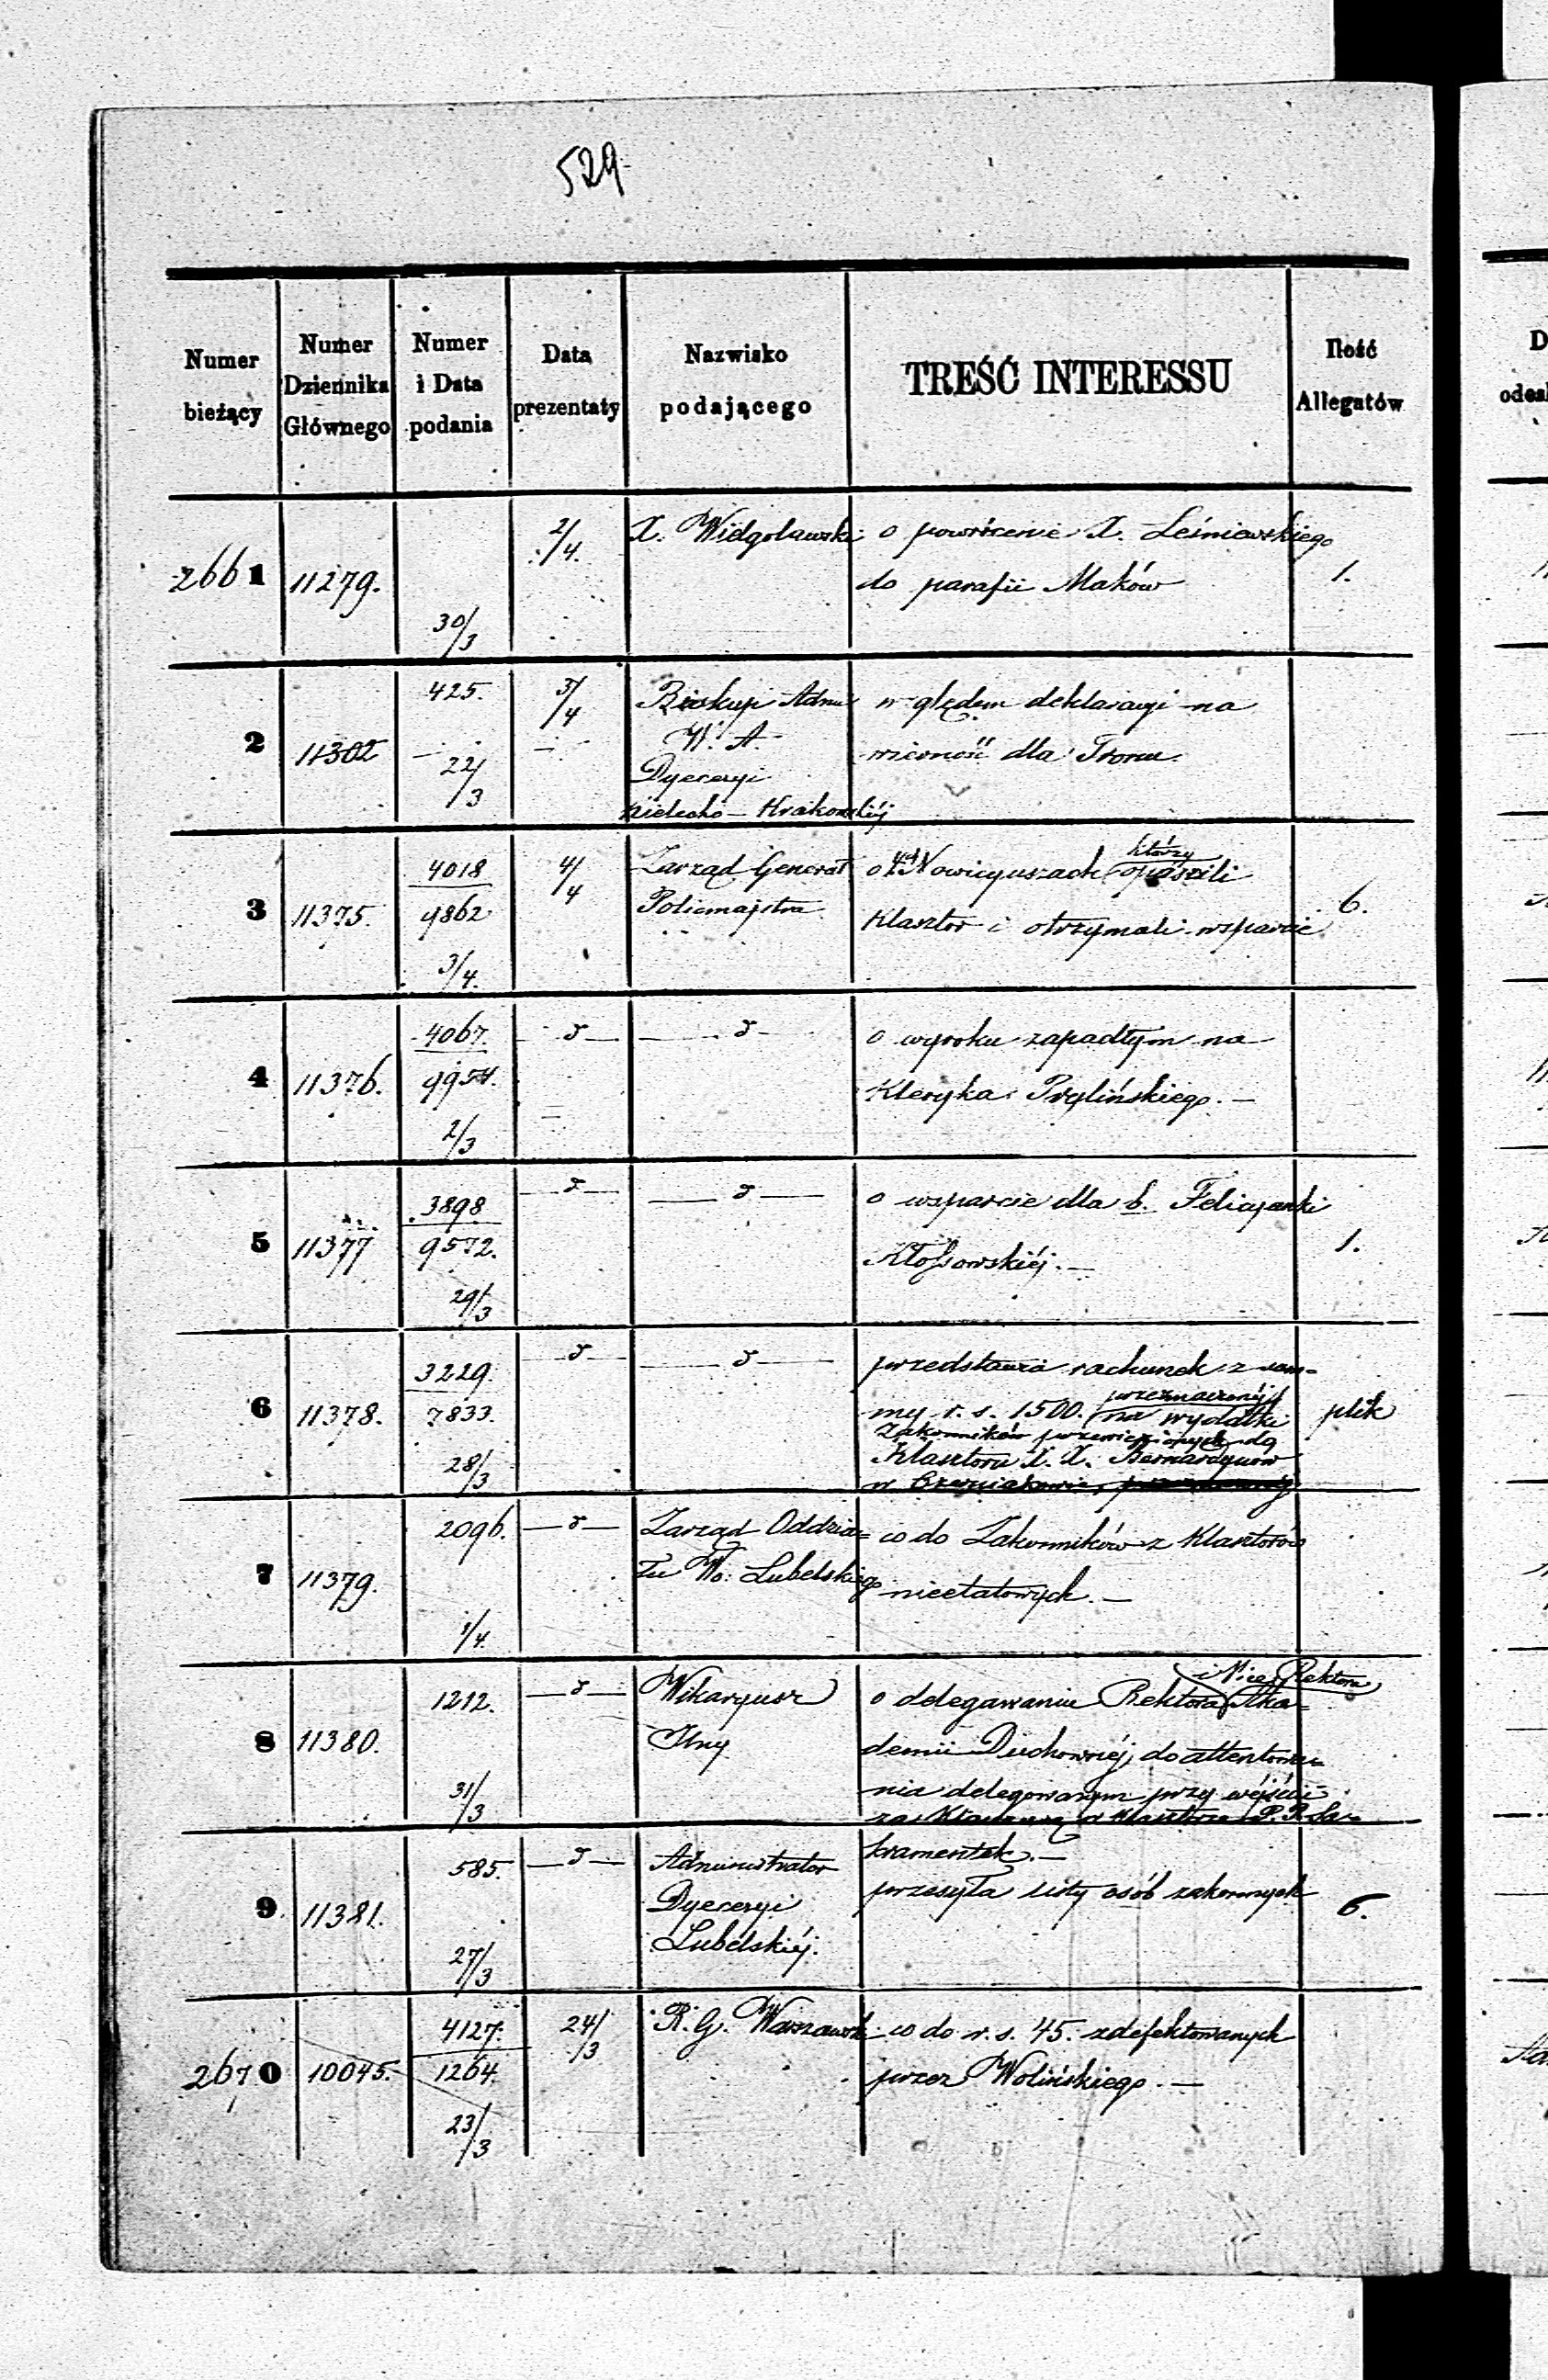 529
Numer bieżący | Numer Dziennika Głównego | Numer i Data podania | Data prezentaty | Nazwisko podającego | TREŚĆ INTERESSU | Ilość Allegatów
2661 | 11279. | 30/3 | 2/4. | X. Widgoławski | o powrócenie X. Leśniewskiego
do parafii Maków | 1.
2 | 11302 | 425. 22/3 | 3/4 | Biskup Adm
W. A.
Dyecezyi
Kielecko-Krakowskiéj | względem deklaracyi na
wierność dla Tronu.
3 | 11375. | 4018 9862 3/4. | 4/4 | Zarząd Generał
Policmajstra | o 4ch Nowicyuszach którzy opuścili
Klasztor i otrzymali wsparcie | 6.
4 | 11376. | 4067. 9954. 2/3 | o wyroku zapadłym na
Kleryka Prylińskiego.
5 | 11377 | 3898 9572. 29/3 | o wsparcie dla b. Felicyanki
Kłossowskiéj. | 1.
6 | 11378. | 3229. 7833. 28/3 | przedstawia rachunek z sum-
my r. s. 1500. przeznaczonéj na wydatki
Zakonników przewiezionych do
Klasztoru X. X. Bernardynów
w Czerniakowie, | plik
7 | 11379. | 2096. 1/4. | Zarząd Oddzia-
łu Wo. Lubelskiego | co do Zakonników z Klasztorów
nieetatowych.
8 | 11380. | 1212. 31/3 | Wikaryusz
Jlny | o delegowaniu Rektora i Vice Rektora Aka-
demii Duchownéj, do attentowa-
nia delegowanym przy wejściu
za Klauzurę w Klasztorze P. P. Sa-
kramentek.
9. | 11381. | 585. 27/3 | Administrator
Dyecezyi
Lubelskiéj. | przesyła listy osób zakonnych | 6.
2670 | 10045. | 4127. 1264. 23/3 | 24/3 | R. G. Warszawski | co do r. s. 45. zdefektowanych
przez Wolińskiego.